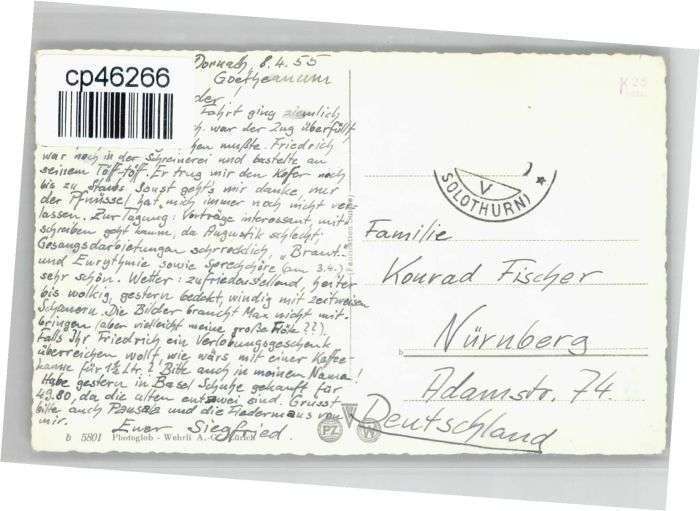 cp46266
Dornach, 8.4.55
Goetheanum
der!
Fahrt ging ziemlich
ch. war der Zug überfüllt,
hen mußte. Friedrich
war noch in der Schreinerei und bastelte an
seinem Töff-töff. Er trug mir den Kofer noch
bis zu Staubs. Sonst geht's mir danke, nur
der Pfnüsel hat mich immer noch nicht ver-
lassen. Zur Tagung: Vorträge interessant, mit-
schreiben geht kaum, da Augustik schlecht,
Gesangsdarbietungen schrecklich, "Braut.."
und Eurythmie sowie Sprechchöre (am 3.4.)
sehr schön. Wetter: zufriedenstellend, heiter
bis wolkig, gestern bedekt, windig mit zeitweisen
Schauern. Die Bilder braucht Max nicht mit-
bringen (aber vielleicht meine große Flöte??).
Falls Ihr Friedrich ein Verlobungsgeschenk
überreichen wollt, wie wärs mit einer Kaffee-
kanne für 1½ Ltr.? Bitte auch in meinem Namen!
Habe gestern in Basel Schuhe gekauft für
49.80, da die alten entzwei sind. Grüsst
bitte auch und die Fledermaus von
mir. Euer Siegfried.
b 5801 Photoglob - Wehrli A. G. Zürich
PZ W
K
V
SOLOTHURN 1
Familie
Konrad Fischer
Nürnberg
Adamstr. 74.
Deutschland